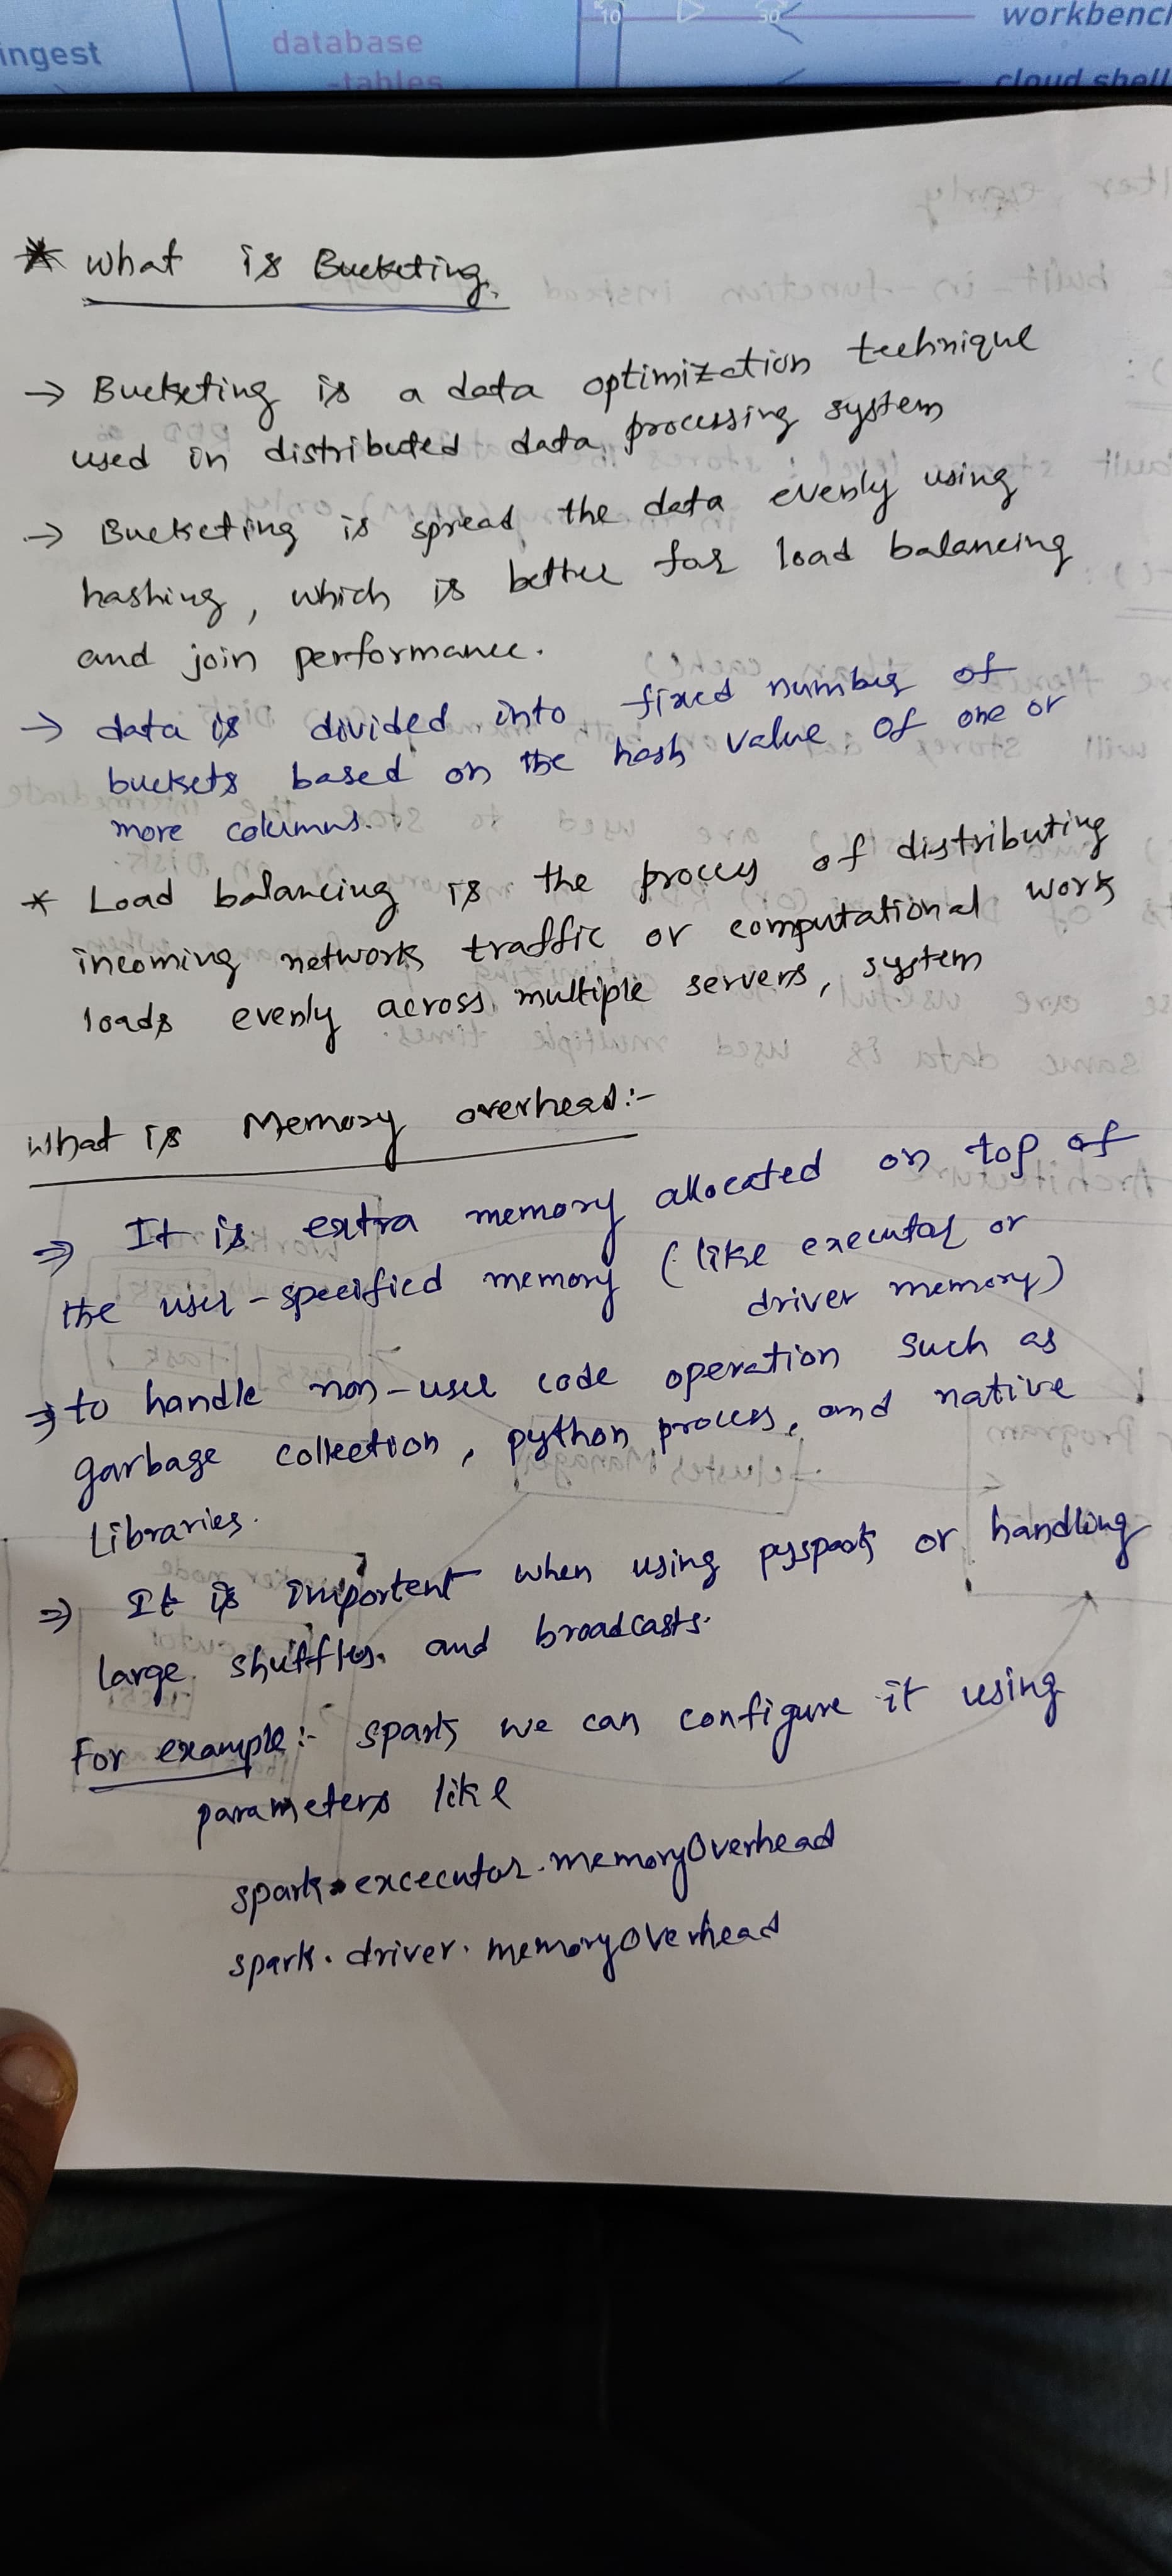 ingest
database
tables
10
30
workbench
cloud shell
* What is Bucketing.
→ Bucketing is a data optimization technique
used in distributed data processing system
→ Bucketing is spread the data evenly using
hashing, which is better for load balancing
and join performance.
→ data is divided into fixed number of
buckets based on the hash value of one or
more columns.
* Load balancing is the process of distributing
incoming network traffic or computational work
loads evenly across multiple servers, system
What is Memory overhead:-
⇒ It is extra memory allocated on top of
the user-specified memory (like executor or
driver memory)
⇒ to handle non-user code operation such as
garbage collection, python process, and native
Libraries.
⇒ It is importent when using pyspark or handling
large shuffles. and broadcasts.
For example:- spark we can configure it using
parameters like
spark.excecutor.memoryOverhead
spark.driver.memoryOverhead